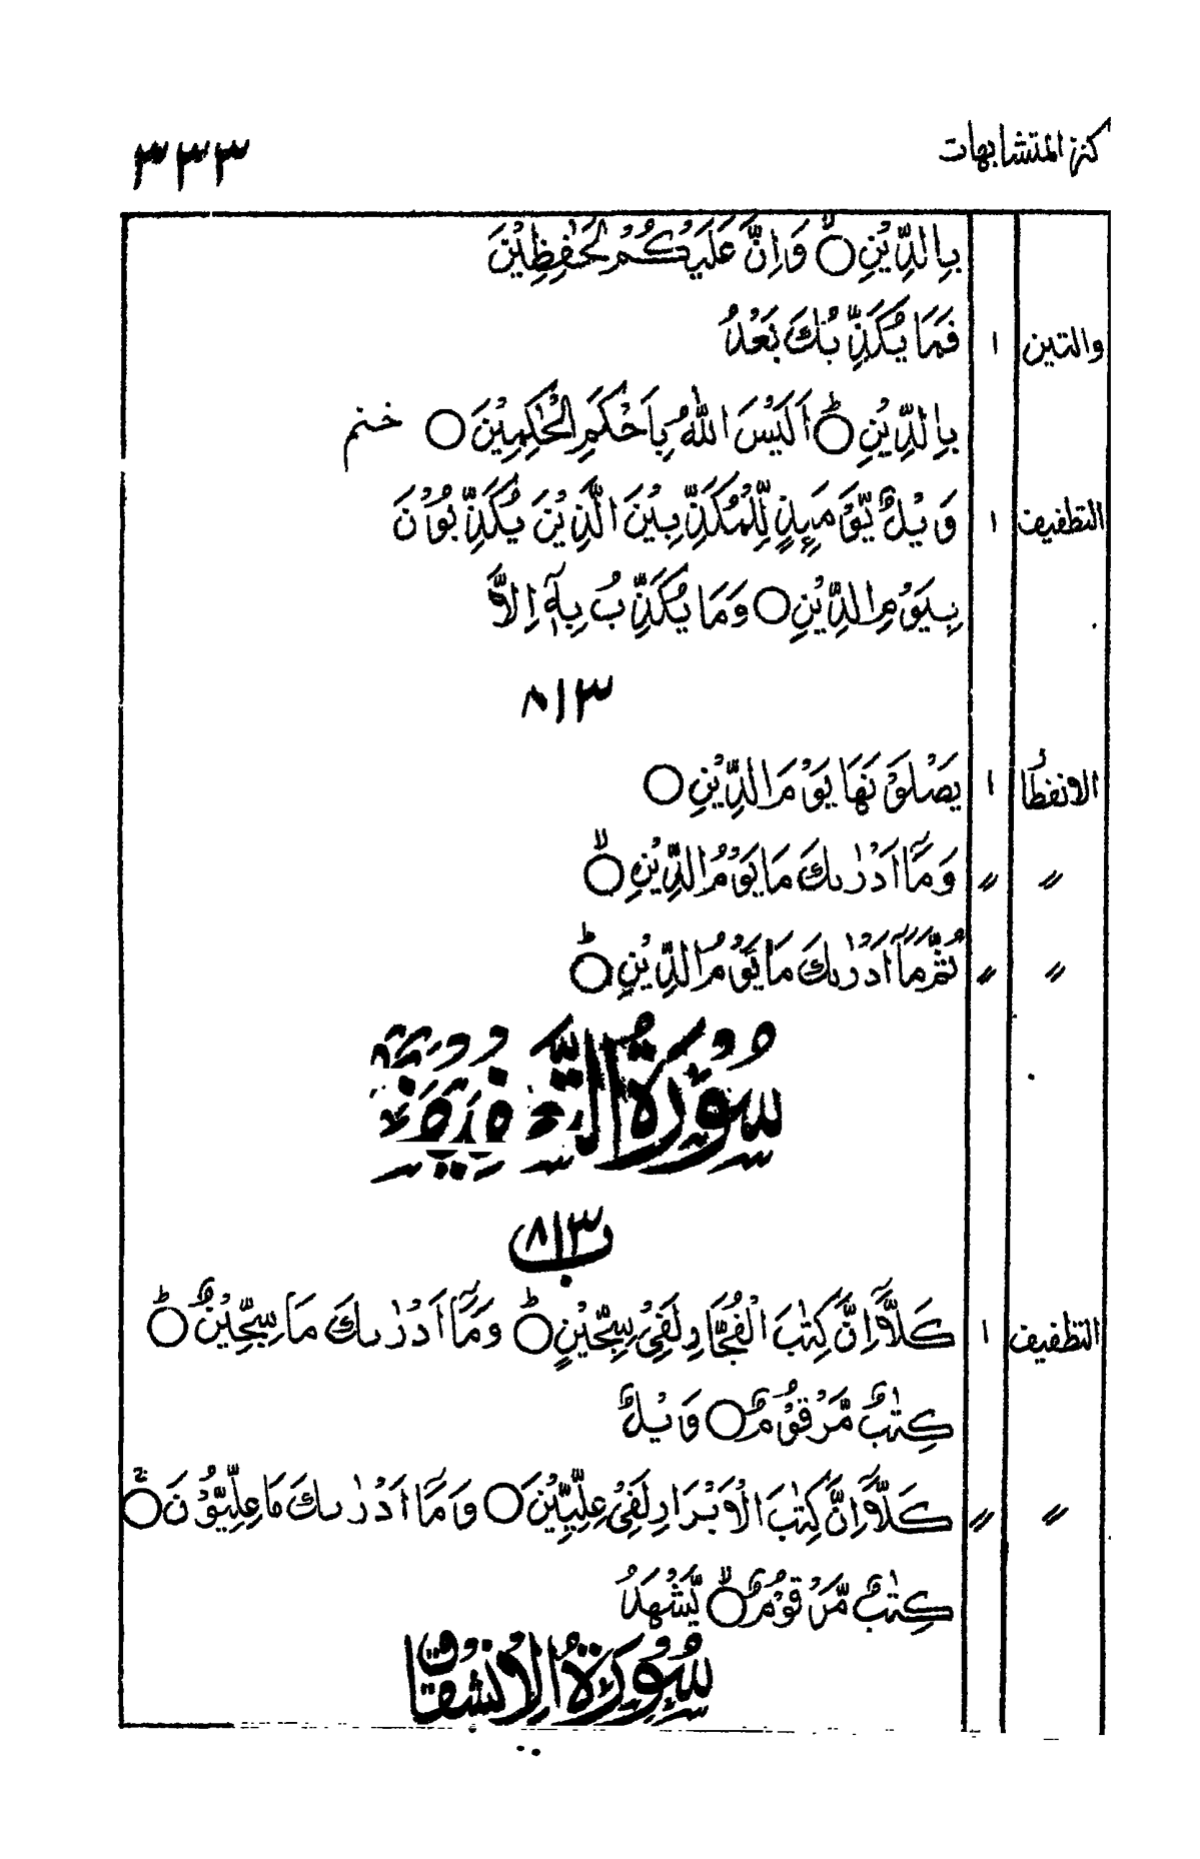 كنز المتشابهات ٣٣٣
بِالدِّيْنِ ۙ وَاِنَّ عَلَيْكُمْ لَحٰفِظِيْنَ
والتين ١ فَمَا يُكَذِّبُكَ بَعْدُ
بِالدِّيْنِ ؕ اَلَيْسَ اللّٰهُ بِاَحْكَمِ الْحٰكِمِيْنَ ○ ختم
التطفيف ١ وَيْلٌ يَّوْمَىِٕذٍ لِّلْمُكَذِّبِيْنَ الَّذِيْنَ يُكَذِّبُوْنَ
بِيَوْمِ الدِّيْنِ ○ وَمَا يُكَذِّبُ بِهٖۤ اِلَّا
٨١٣
الانفطار ١ يَصْلَوْنَهَا يَوْمَ الدِّيْنِ ○
〃 〃 وَمَاۤ اَدْرٰىكَ مَا يَوْمُ الدِّيْنِ ۙ
〃 〃 ثُمَّ مَاۤ اَدْرٰىكَ مَا يَوْمُ الدِّيْنِ ؕ
سُوْرَةُ التَّطْفِيْفِ
٨١٣ ب
التطفيف ١ كَلَّاۤ اِنَّ كِتٰبَ الْفُجَّارِ لَفِيْ سِجِّيْنٍ ؕ وَمَاۤ اَدْرٰىكَ مَا سِجِّيْنٌ ؕ
كِتٰبٌ مَّرْقُوْمٌ ○ وَيْلٌ
〃 〃 كَلَّاۤ اِنَّ كِتٰبَ الْاَبْرَارِ لَفِيْ عِلِّيِّيْنَ ○ وَمَاۤ اَدْرٰىكَ مَا عِلِّيُّوْنَ ؕ
كِتٰبٌ مَّرْقُوْمٌ ۙ يَّشْهَدُ
سُوْرَةُ الْاِنْشِقَاقِ